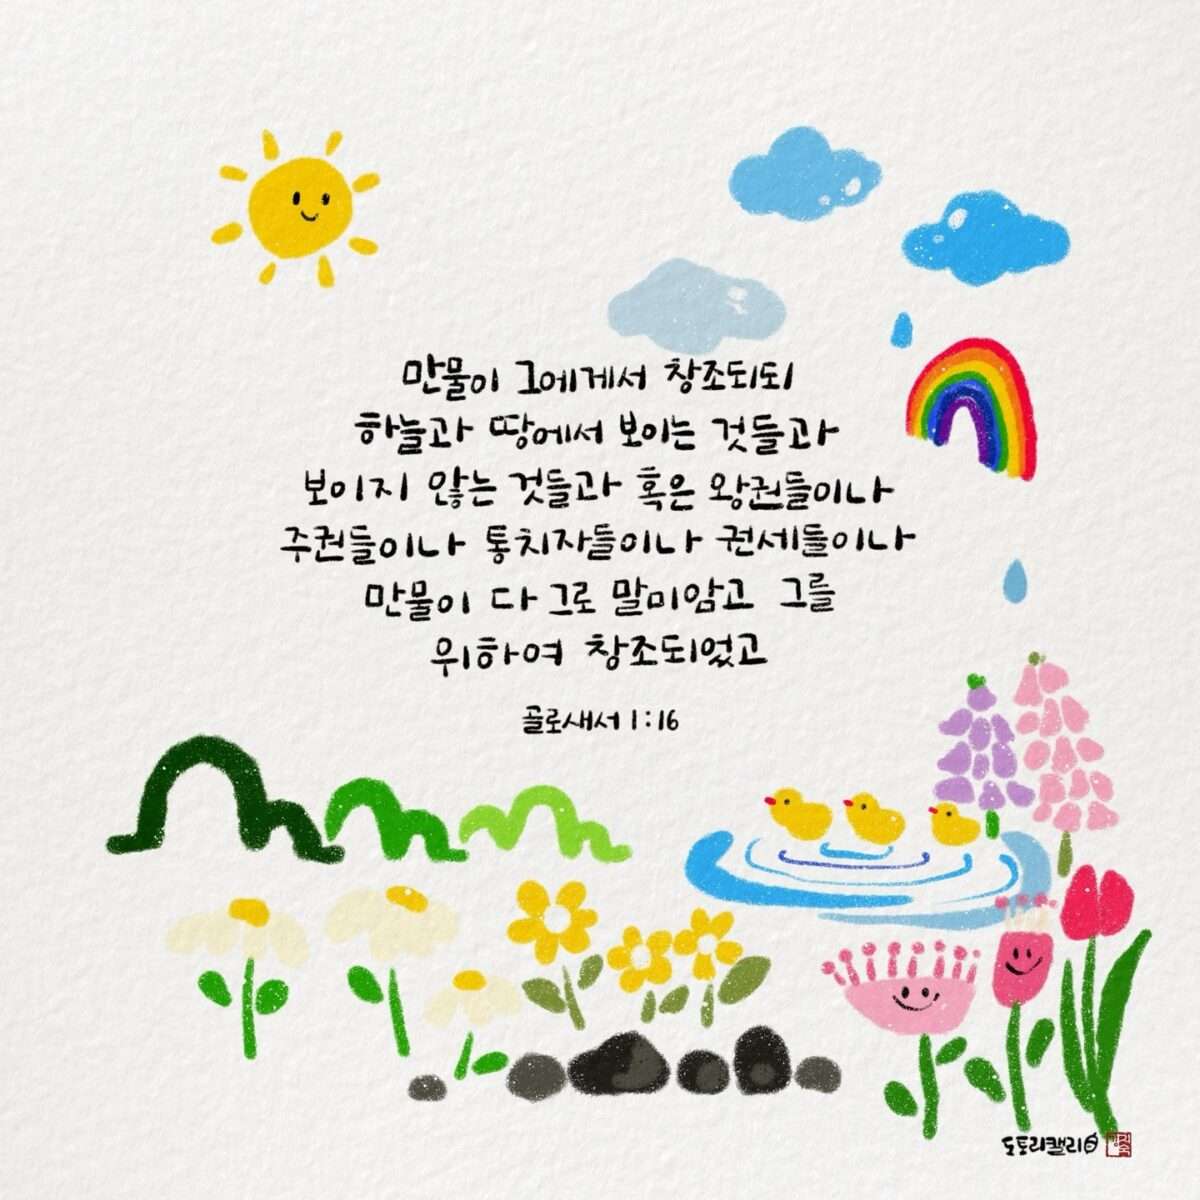 만물이 그에게서 창조되되
하늘과 땅에서 보이는 것들과
보이지 않는 것들과 혹은 왕권들이나
주권들이나 통치자들이나 권세들이나
만물이 다 그로 말미암고 그를
위하여 창조되었고
골로새서 1:16
도토리캘리